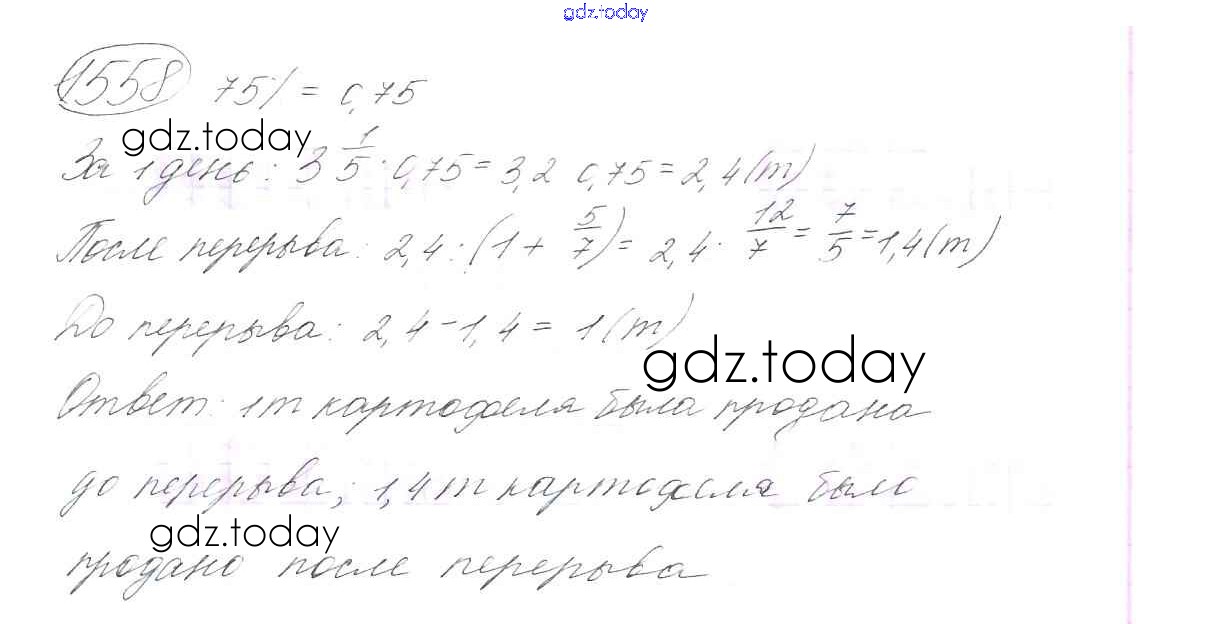 gdz.today
1558 75% = 0,75
gdz.today
За 1 день: 3 1/5 · 0,75 = 3,2 0,75 = 2,4 (т)
После перерыва: 2,4 : (1 + 5/7) = 2,4 · 12/7 = 7/5 = 1,4 (т)
До перерыва: 2,4 - 1,4 = 1 (т)
gdz.today
Ответ: 1 т картофеля была продана
до перерыва; 1,4 т картофеля было
gdz.today
продано после перерыва